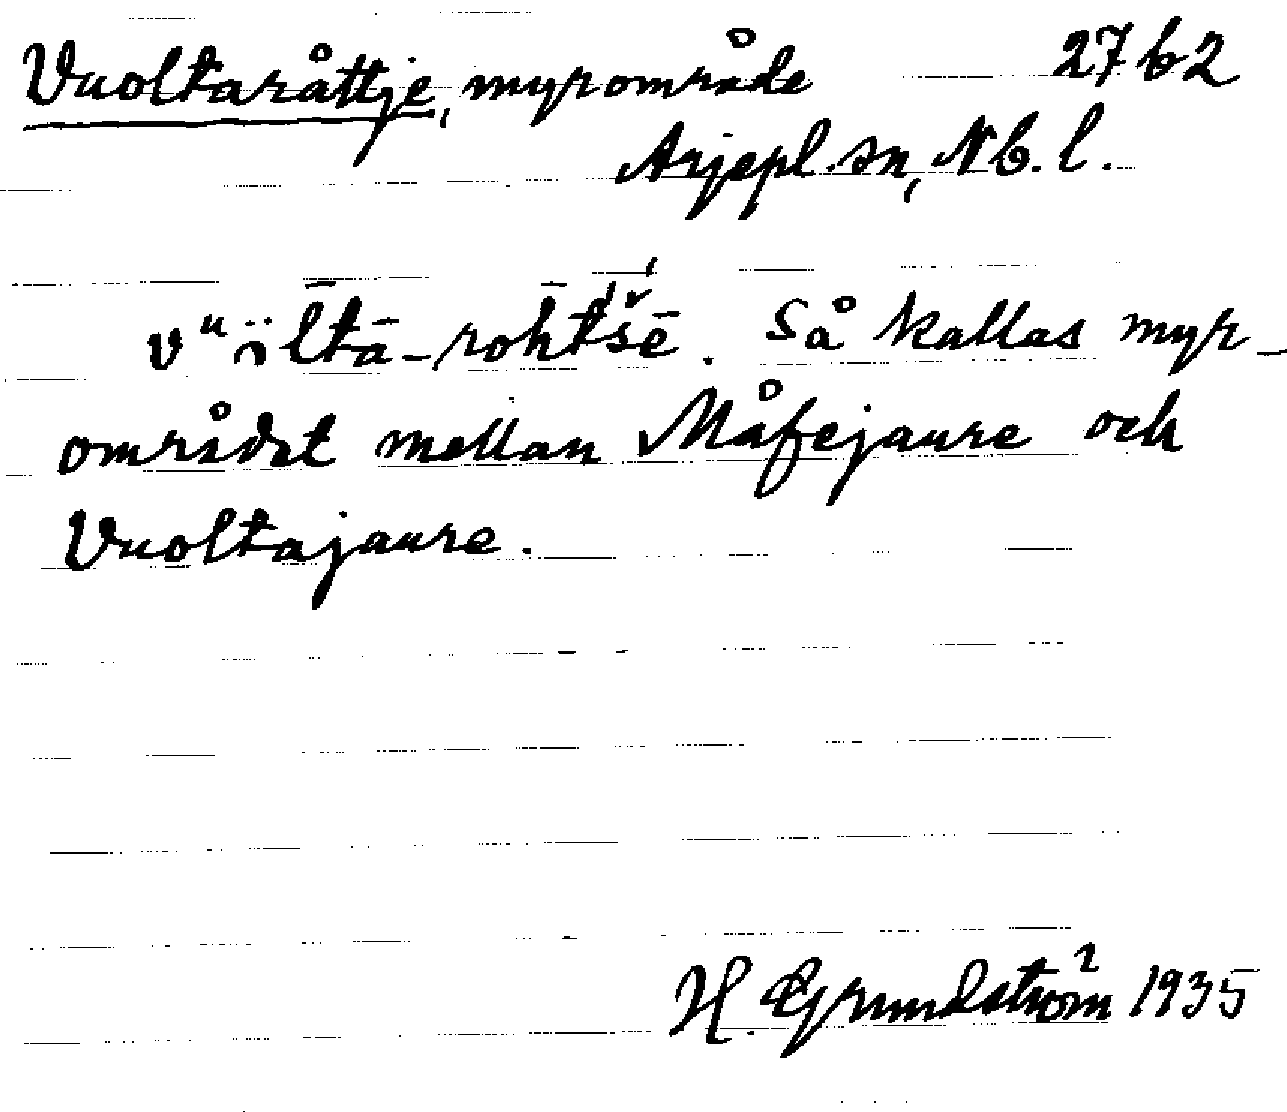 Vuoltaråttje, myrområde 2762
Arjepl. sn, Nb. l.
vᵘöl̄tā-roh̄t'šē. Så kallas myr-
området mellan Måfejaure och
Vuoltajaure.
H. Grundström 1935